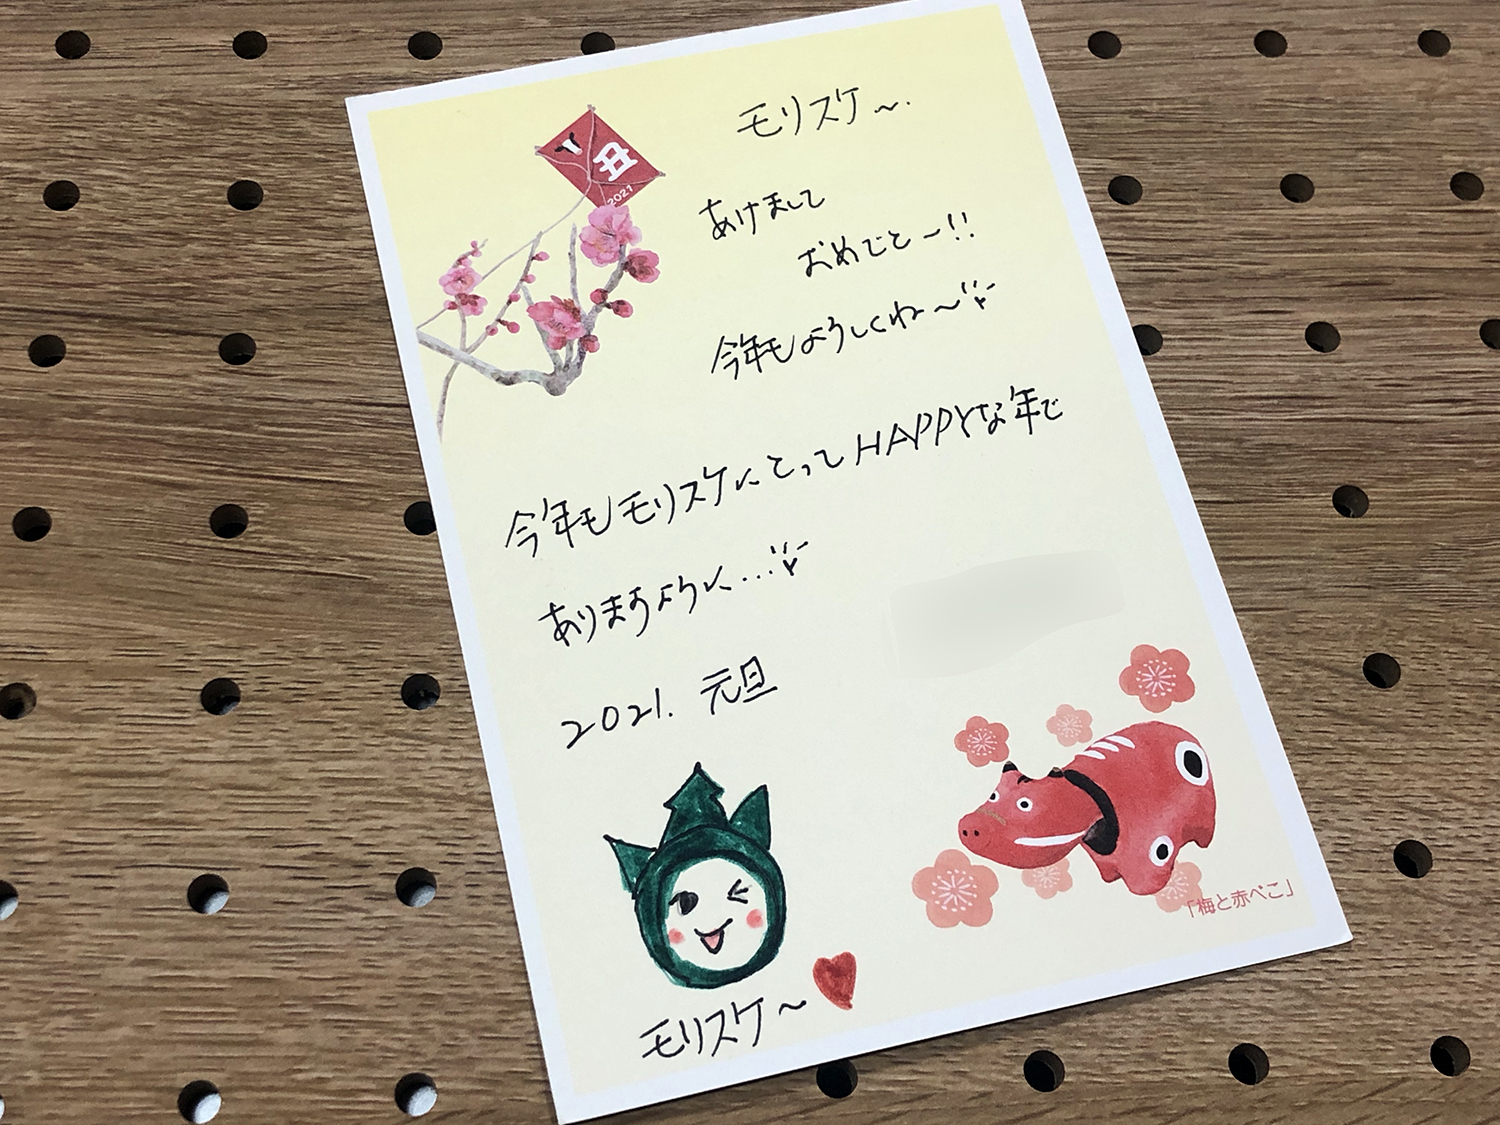 丑
2021
モリスケ〜.
あけまして
おめでと〜!!
今年もようしくね〜
今年もモリスケにとってHAPPYな年で
ありますように...
2021. 元旦
モリスケ〜
「梅と赤べこ」